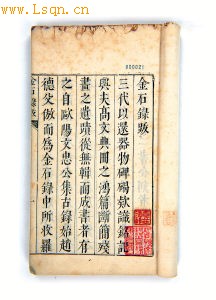 www.Lsqn.cn
金石錄跋
三代以還器物碑碣欵識銘
與夫高文典冊之鴻篇斷簡殘
畫之遺蹟從無輯而成書者有
之自歐陽文忠公集古錄始趙
德父倣而為金石錄中所收羅
金石錄跋